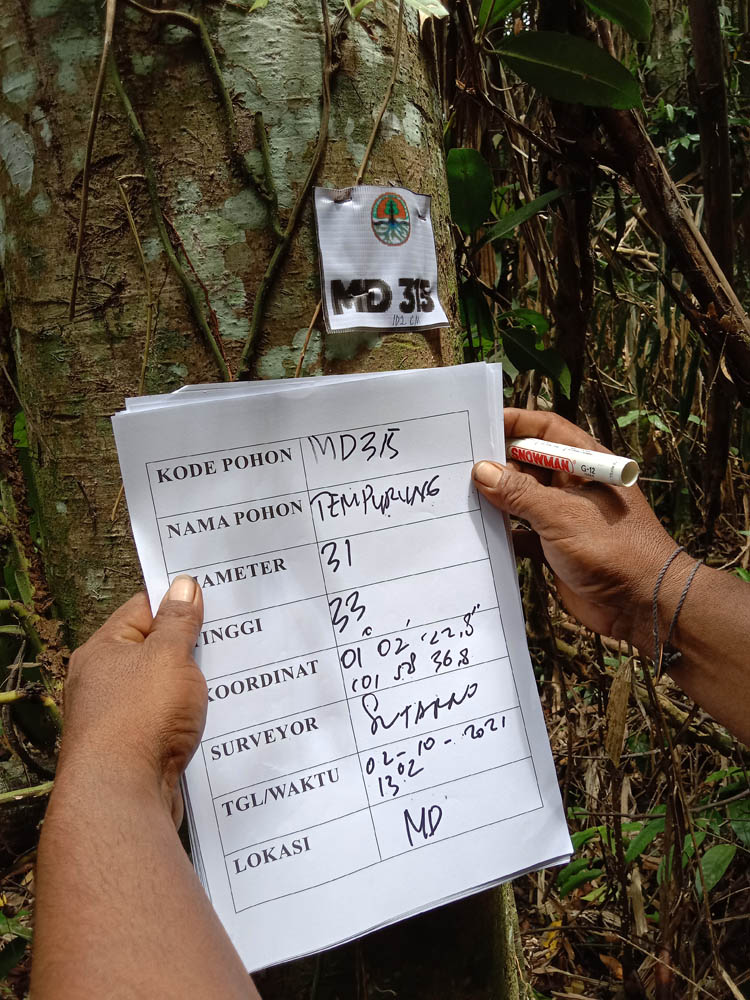 MD 315
KODE POHON MD315
NAMA POHON TEMPURUNG
DIAMETER 31
TINGGI 33
KOORDINAT 01° 02' 22,8"
101 58 36.8
SURVEYOR SUTARNO
TGL/WAKTU 02-10-2021
13.02
LOKASI MD
SNOWMAN G-12